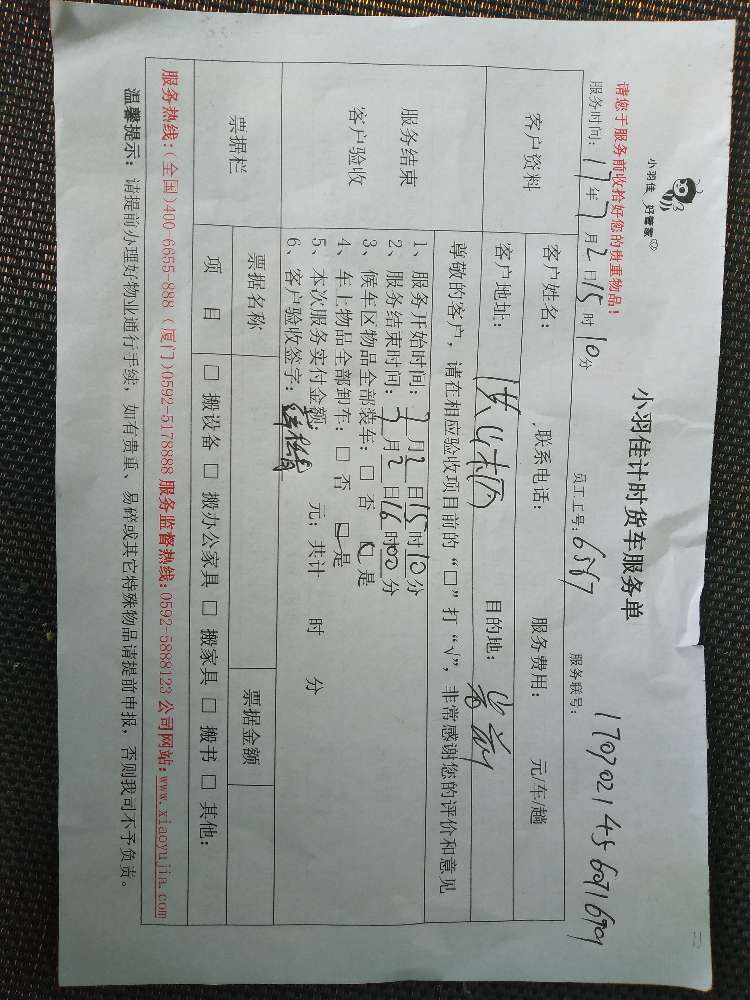 小羽佳 好管家
小羽佳计时货车服务单
请您于服务前收拾好您的贵重物品！
服务时间：17年7月2日15时10分 员工工号：6587 服务联号：
客户资料
客户姓名： 联系电话： 服务费用： 元/车/趟
客户地址： 目的地：
服务结束
客户验收
尊敬的客户，请在相应验收项目前的“□”打“√”，非常感谢您的评价和意见
1、服务开始时间：7月2日15时10分
2、服务结束时间：7月2日16时00分
3、候车区物品全部装车：□ 否 □ 是
4、车上物品全部卸车：□ 否 □ 是
5、本次服务实付金额： 元；共计 时 分
6、客户验收签字：
票据栏
票据名称 票据金额
项 目 □ 搬设备 □ 搬办公家具 □ 搬家具 □ 搬书 □ 其他:
服务热线:(全国)400-6655-888 (厦门)0592-5178888 服务监督热线:0592-5888123 公司网站:www.xiaoyujia.com
温馨提示：请提前办理好物业通行手续，如有贵重、易碎或其它特殊物品请提前申报，否则我司不予负责。